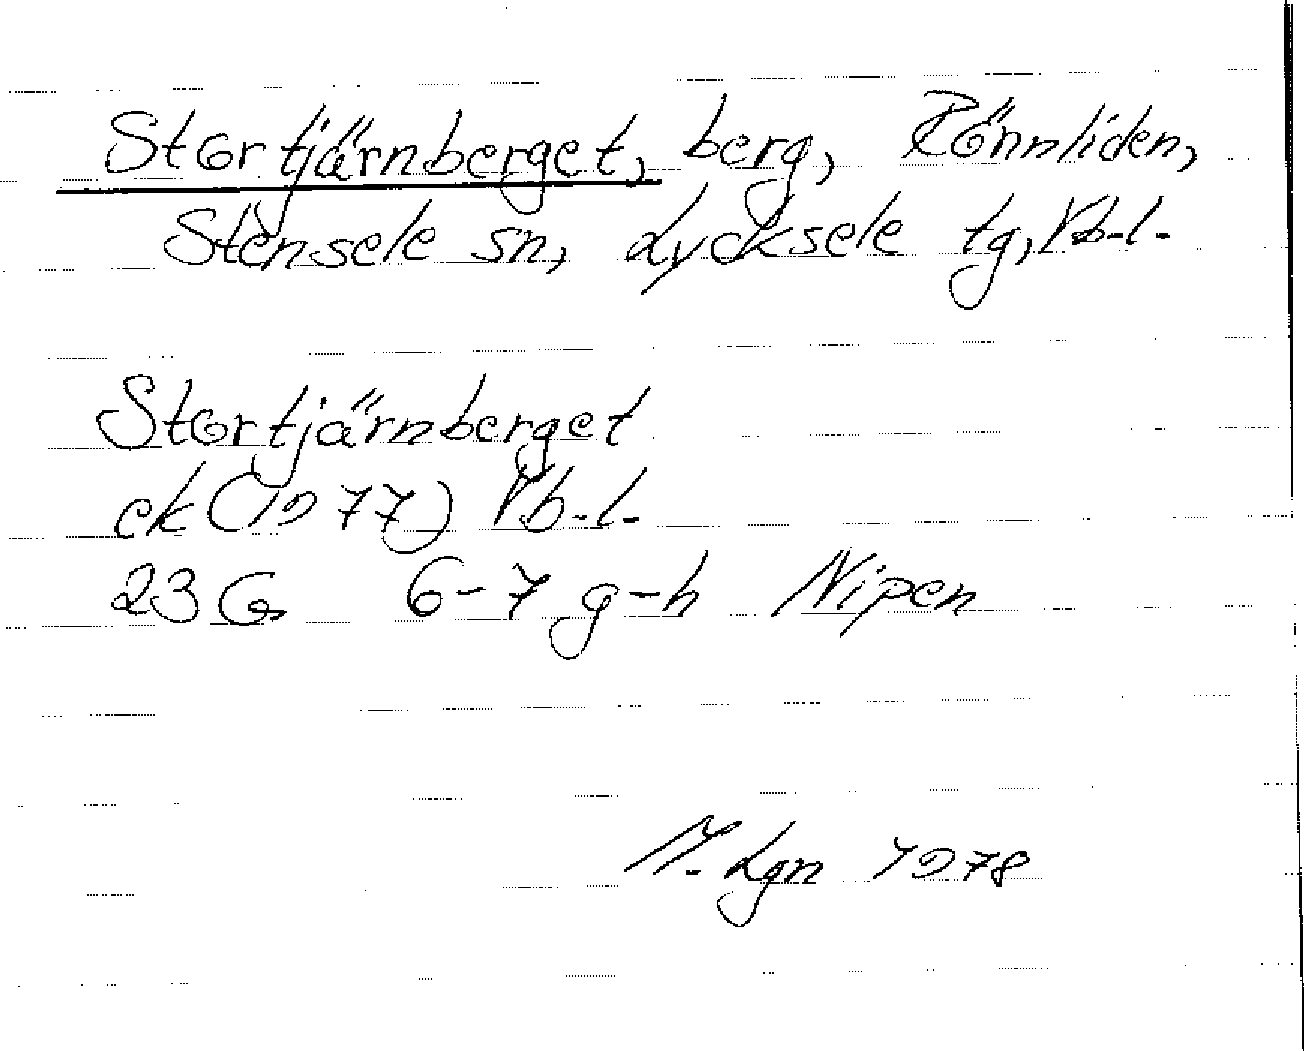 Stortjärnberget, berg, Rönnliden,
Stensele sn, Lycksele tg, Vb.l.
Stortjärnberget
ek (1977) Vb.l.
23 G 6-7 g-h Nipen
M. Lgn 1978